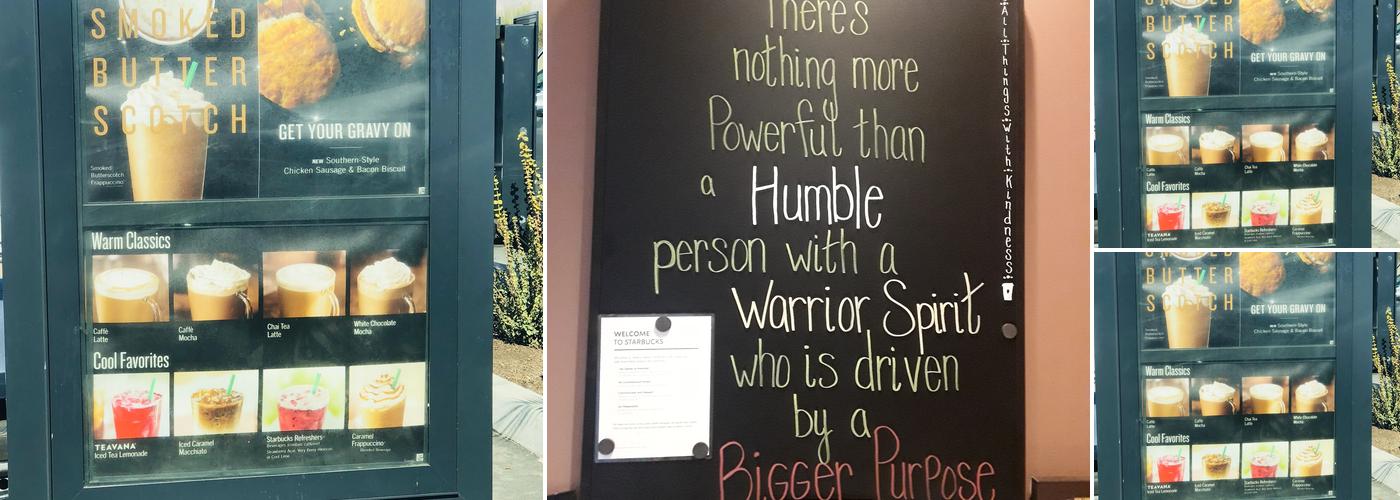 SMOKED
BUTTER
SCOTCH
Smoked
Butterscotch
Frappuccino
GET YOUR GRAVY ON
NEW Southern-Style
Chicken Sausage & Bacon Biscuit
Warm Classics
Caffè
Latte
Caffè
Mocha
Chai Tea
Latte
White Chocolate
Mocha
Cool Favorites
TEAVANA
Iced Tea Lemonade
Iced Caramel
Macchiato
Starbucks Refreshers
Strawberry Acai, Very Berry Hibiscus
or Cool Lime
Caramel
Frappuccino
Blended Beverage
There's
nothing more
Powerful than
a Humble
person with a
Warrior Spirit
who is driven
by a
Bigger Purpose
All Things with Kindness
WELCOME
TO STARBUCKS
SMOKED
BUTTER
SCOTCH
GET YOUR GRAVY ON
NEW Southern-Style
Chicken Sausage & Bacon Biscuit
Warm Classics
Caffè
Latte
Caffè
Mocha
Chai Tea
Latte
White Chocolate
Mocha
Cool Favorites
TEAVANA
Iced Tea Lemonade
Iced Caramel
Macchiato
Starbucks Refreshers
Caramel
Frappuccino
BUTTER
SCOTCH
GET YOUR GRAVY ON
NEW Southern-Style
Chicken Sausage & Bacon Biscuit
Warm Classics
Caffè
Latte
Caffè
Mocha
Chai Tea
Latte
White Chocolate
Mocha
Cool Favorites
TEAVANA
Iced Tea Lemonade
Iced Caramel
Macchiato
Starbucks Refreshers
Caramel
Frappuccino